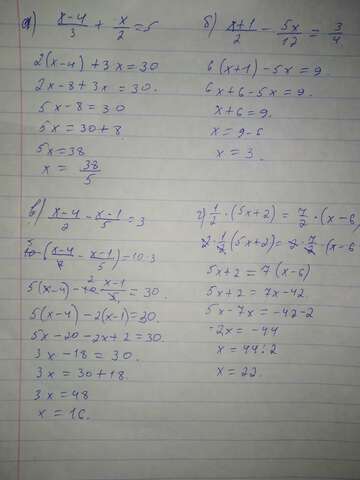 а) (x-4)/3 + -x/2 = 5
2(x-4) + 3x = 30
2x - 8 + 3x = 30.
5x - 8 = 30
5x = 30 + 8
5x = 38
x = 38/5
б) (x+1)/2 - 5x/12 = 3/4
6(x+1) - 5x = 9.
6x + 6 - 5x = 9.
x + 6 = 9.
x = 9 - 6
x = 3.
в) (x-4)/2 - (x-1)/5 = 3
5 10·((x-4)/2 - (x-1)/5) = 10·3
5(x-4) - 10 2 (x-1)/5 = 30.
5(x-4) - 2(x-1) = 30.
5x - 20 - 2x + 2 = 30.
3x - 18 = 30.
3x = 30 + 18.
3x = 48
x = 16.
г) 1/2·(5x+2) = 7/2·(x-6)
2·1/2(5x+2) = 2·7/2·(x-6
5x + 2 = 7(x-6)
5x + 2 = 7x - 42
5x - 7x = -42 - 2
-2x = -44
x = 44:2
x = 22.